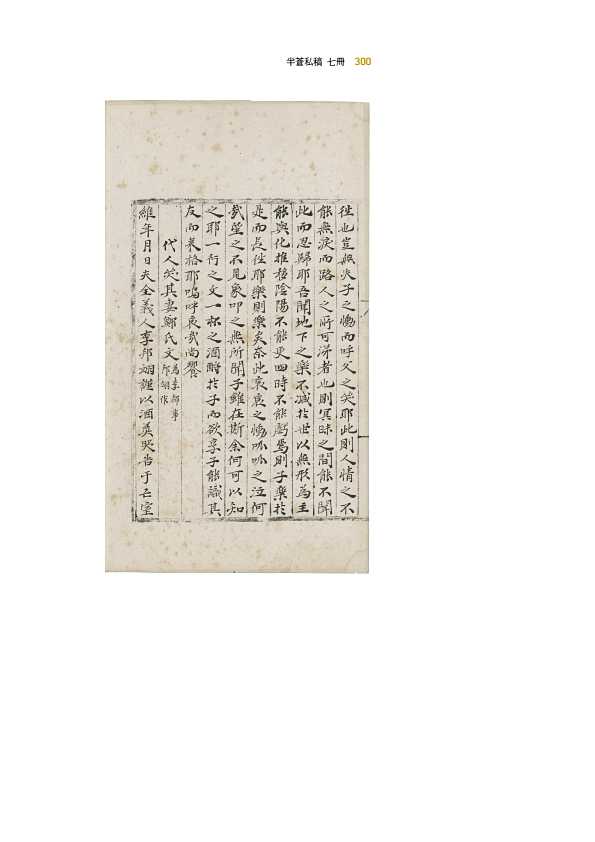 半蒼私稿 七冊 300
徃也豈無夫子之慟而呼父之哭耶此則人情之不
能無淚而路人之所可涕者也則冥昧之間能不聞
此而忍歸耶吾聞地下之樂不减扵世以無形為主
能與化推移陰陽不能更四時不能虧焉則子樂扵
是而長徃耶樂則樂矣奈此哀哀之慟呱呱之泣何
哉望之不見象叩之無所聞子雖在斯余何可以知
之耶一行之文一杯之酒酹扵子而欲享子能識其
友而来格耶嗚呼哀哉尚饗
代人哭其妻鄭氏文 為李都事邦翊作
維年月日夫全義人李邦翊謹以酒羹哭告于亡室